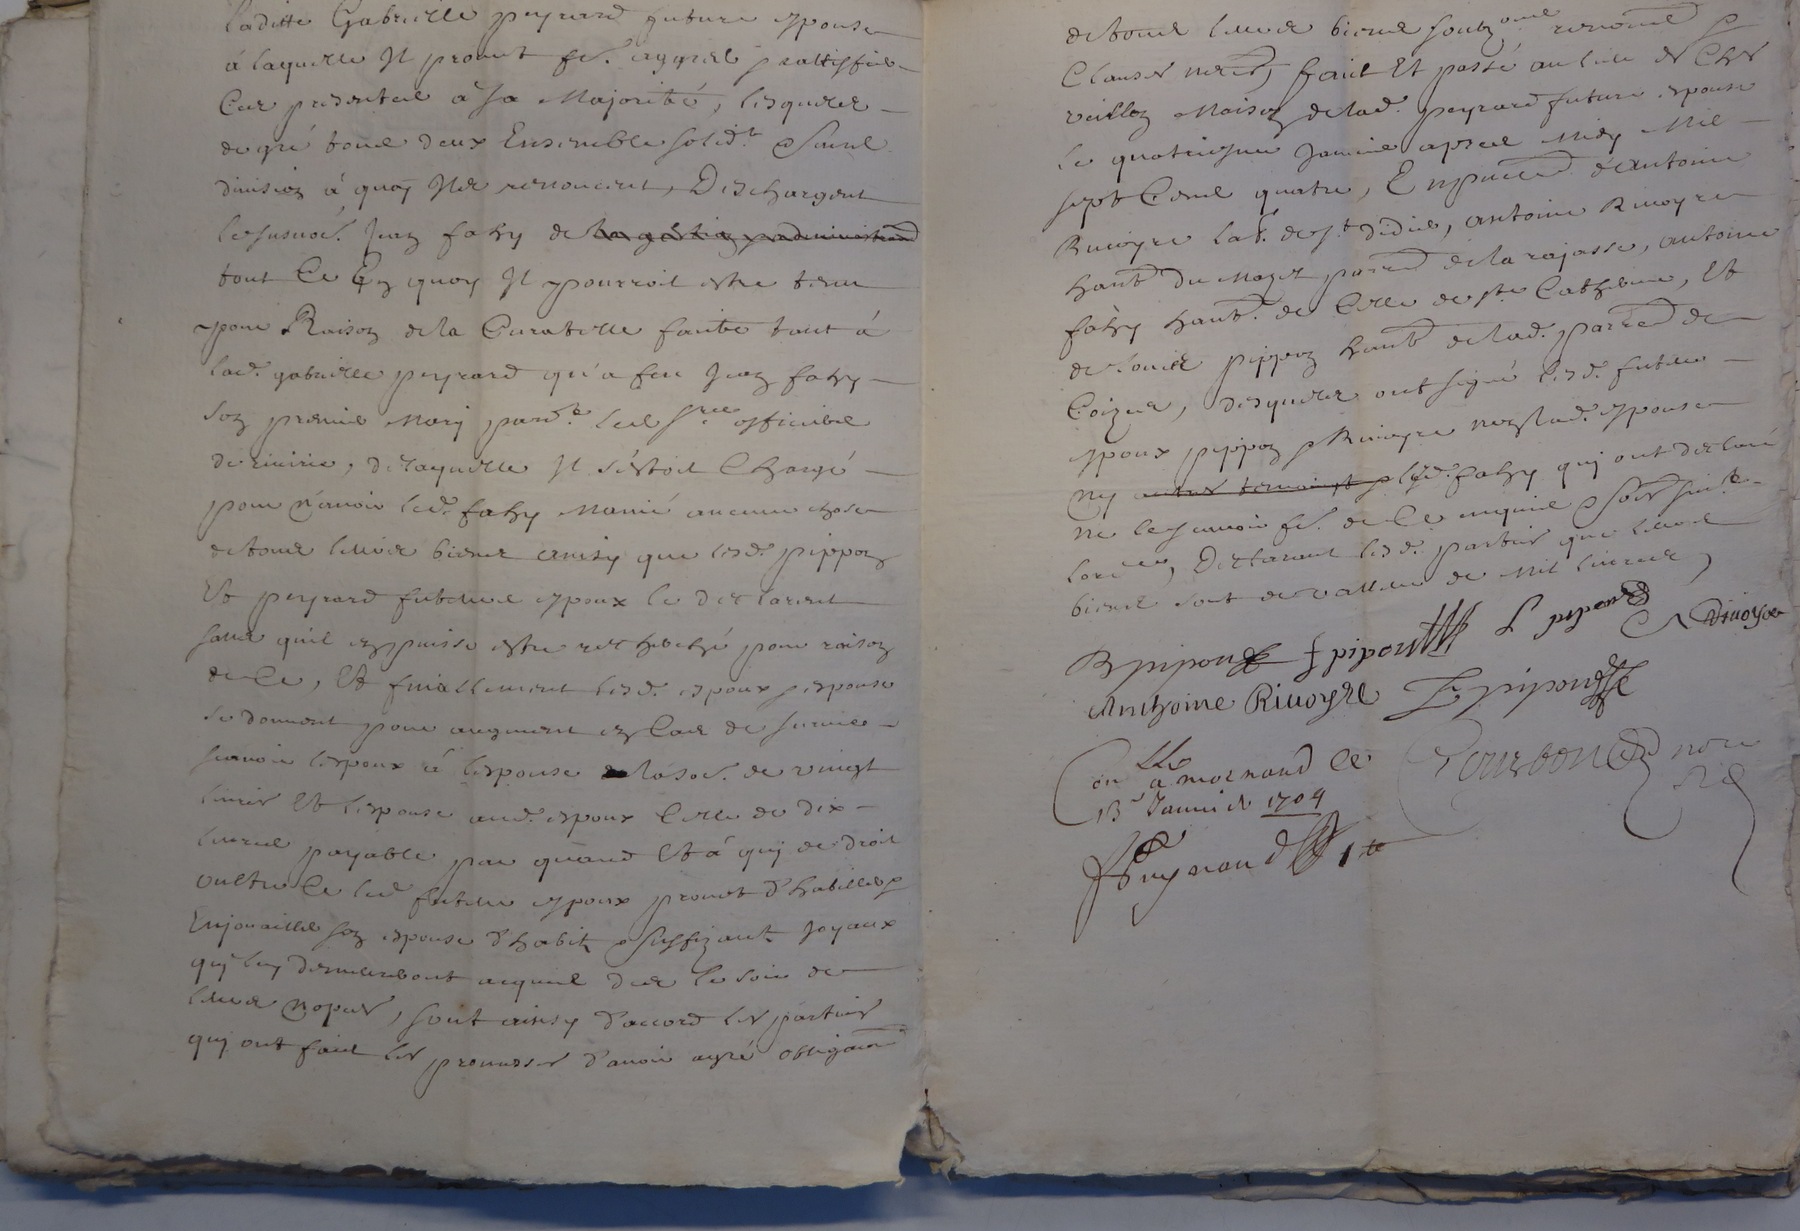 laditte Gabrielle peyrard future espouse
à laquelle Il promet fe. aggreer & rattiffier
Ces presentes à sa Majorité, lesquels
de gré tous deux Ensemble solidt. & sans
division à quoy Ils renoncent, Deschargent
le susnoé. Jean fahy de la gestion & administraon
tout Ce En quoy Il pourroit estre tenu
pour Raison de la Curatelle faite tant à
lad. gabrielle peyrard qu'a feu Jean fahy
son premier Mary pard. les Srs. officiers
de riverie, de laquelle Il s'estoit Chargé
pour n'avoir led. fahy Manié aucune chose
de tous leurs biens ainsy que lesd. pippon
Et peyrard futurs espoux le declarent
sans qu'il en puisse estre recherché pour raison
de Ce, Et finallement lesd. espoux & espouse
se donnent pour augment en Cas de survie
scavoir l'espoux à l'espouse la so. de vingt
livres Et l'espouse aud. espoux Celle de dix
livres payable par quand Et à qui de droit
oultre Ce led. futur espoux promet d'habiller &
Enjouailler son espouse d'habits & suffizants Joyaux
qui luy demeureront acquis des le soir de
leurs nopces, sont ainsy d'accord les parties
qui ont fait les promesses d'avoir agré obligaon
de tous leurs biens renoncé &
Clauses necess, fait Et passé au lieu de
Maison de lad. peyrard future espouse
le quatriesme Janvier apres Midy Mil
sept Cens quatre, En pnce d'antoine
Rivoyre lab. de st. didier, antoine Rivoyre
habt. du Mazet parre. de la rajasse, antoine
fahy habt. de Celle de ste Catherine, Et
de Louis pippon habt. de lad. parre. de
Coizeu, desquels ont signé lesd. futur
espoux pippon & Rivoyre non lad. espouse
ny autres temoins & led. fahy qui ont declaré
ne le scavoir fe. de Ce enquis &
, Declarant lesd. parties que leurs
biens sont de valleur de Mil livres
B pipon f pipon L pipon A Rivoyre
Anthoine Rivoyre F pipon
Conllé à mornand Ce Tourbon nore
13e Janvier 1704 Rl